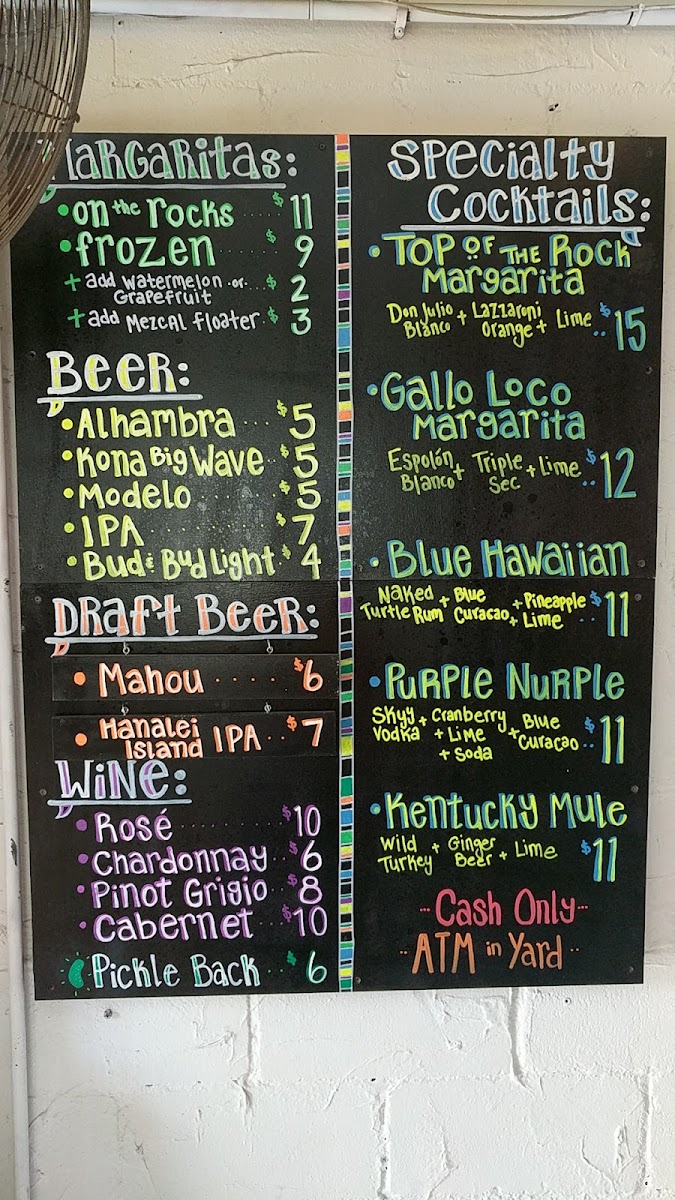 Margaritas:
• on the rocks .... $11
• frozen ...... $9
+ add watermelon or $2
Grapefruit
+ add Mezcal Floater $3
Beer:
• Alhambra ... $5
• Kona Big Wave $5
• Modelo ...... $5
• IPA ........ $7
• Bud & Bud Light $4
Draft Beer:
• Mahou ..... $6
• Hanalei
Island IPA ... $7
Wine:
• Rosé ......... $10
• Chardonnay .. $6
• Pinot Grigio .. $8
• Cabernet ... $10
Pickle Back .. $6
Specialty
Cocktails:
• Top of the Rock
Margarita
Don Julio Blanco + Lazzaroni Orange + Lime .. $15
• Gallo Loco
Margarita
Espolón Blanco + Triple Sec + Lime .. $12
• Blue Hawaiian
Naked Turtle Rum + Blue Curacao + Pineapple + Lime $11
• Purple Nurple
Skyy Vodka + Cranberry + Lime + Soda + Blue Curacao .. $11
• Kentucky Mule
Wild Turkey + Ginger Beer + Lime $11
-- Cash Only --
.. ATM in Yard ..